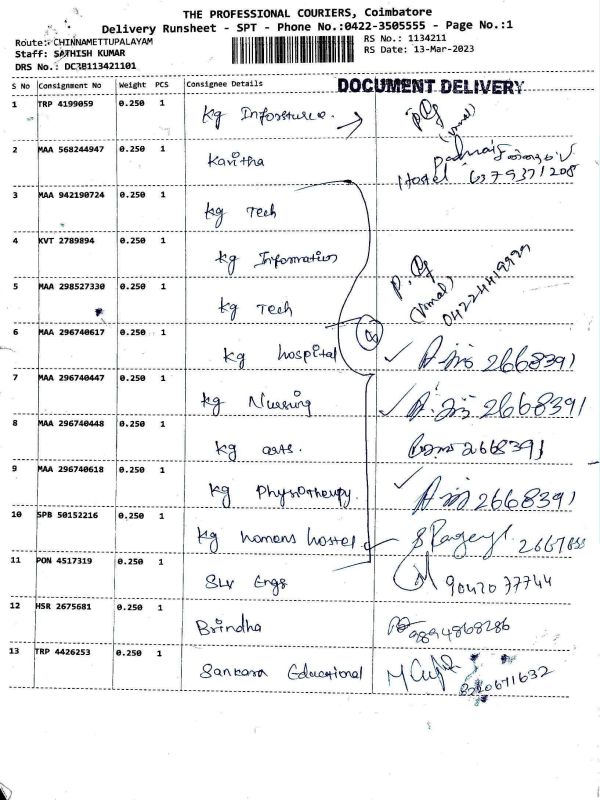 THE PROFESSIONAL COURIERS, Coimbatore
Delivery Runsheet - SPT - Phone No.:0422-3505555 - Page No.:1
Route: CHINNAMETTUPALAYAM RS No.: 1134211
Staff: SATHISH KUMAR RS Date: 13-Mar-2023
DRS No.: DCBB113421101
S No Consignment No Weight PCS Consignee Details DOCUMENT DELIVERY
1 TRP 4199059 0.250 1
kg (Vimal)
2 MAA 568244947 0.250 1 Kavitha
Hostel 6379371208
3 MAA 942190724 0.250 1
kg Tech
4 KVT 2789894 0.250 1
kg Information
5 MAA 298527330 0.250 1
kg Tech (Vimal)
6 MAA 296740617 0.250 1
kg hospital 2668391
7 MAA 296740447 0.250 1
kg Nursing 2668391
8 MAA 296740448 0.250 1
kg arts. 2668391
9 MAA 296740618 0.250 1
kg Physiotherapy. 2668391
10 SPB 50152216 0.250 1
kg womens hostel
11 PON 4517319 0.250 1
SLV Engs 9042037744
12 HSR 2675681 0.250 1
Brindha 9894868286
13 TRP 4426253 0.250 1
Sankara Educational